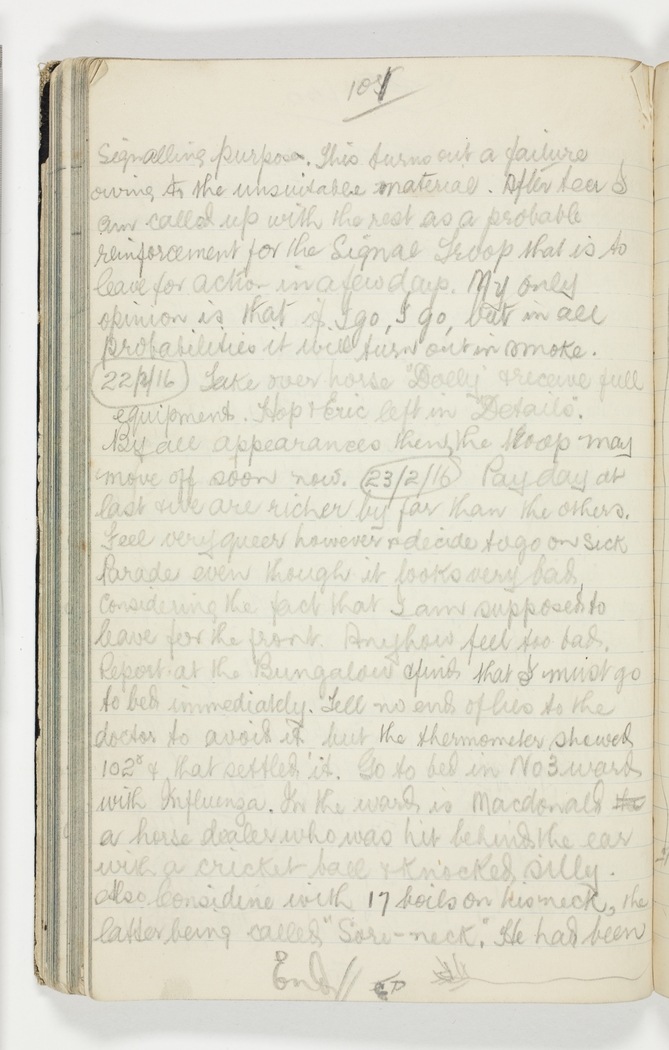 Signalling purpose. This turns out a failure
owing to the unsuitable material. After tea I
am called up with the rest as a probable
reinforcement for the Signal Troop that is to
leave for action in a few days. My only
opinion is that if I go, I go, but in all
probabilities it will turn out in smoke.
22/2/16 Take over horse "Dolly" & receive full
equipment. Hop & Eric left in "Details".
By all appearances then, the troop may
move off soon now. 23/2/16 Pay day at
last & we are richer by far than the others.
Feel very queer however & decide to go on Sick
Parade even though it looks very bad,
considering the fact that I am supposed to
leave for the front. Anyhow feel too bad.
Report at the Bungalow & find that I must go
to bed immediately. Tell no end of lies to the
doctor to avoid it but the thermometer showed
102° & that settled it. Go to bed in No 3 ward
with Influenza. In the ward is Macdonald
a horse dealer who was hit behind the ear
with a cricket ball & knocked silly.
Also Considine with 17 boils on his neck, the
latter being called "Sore-neck." He had been
End //